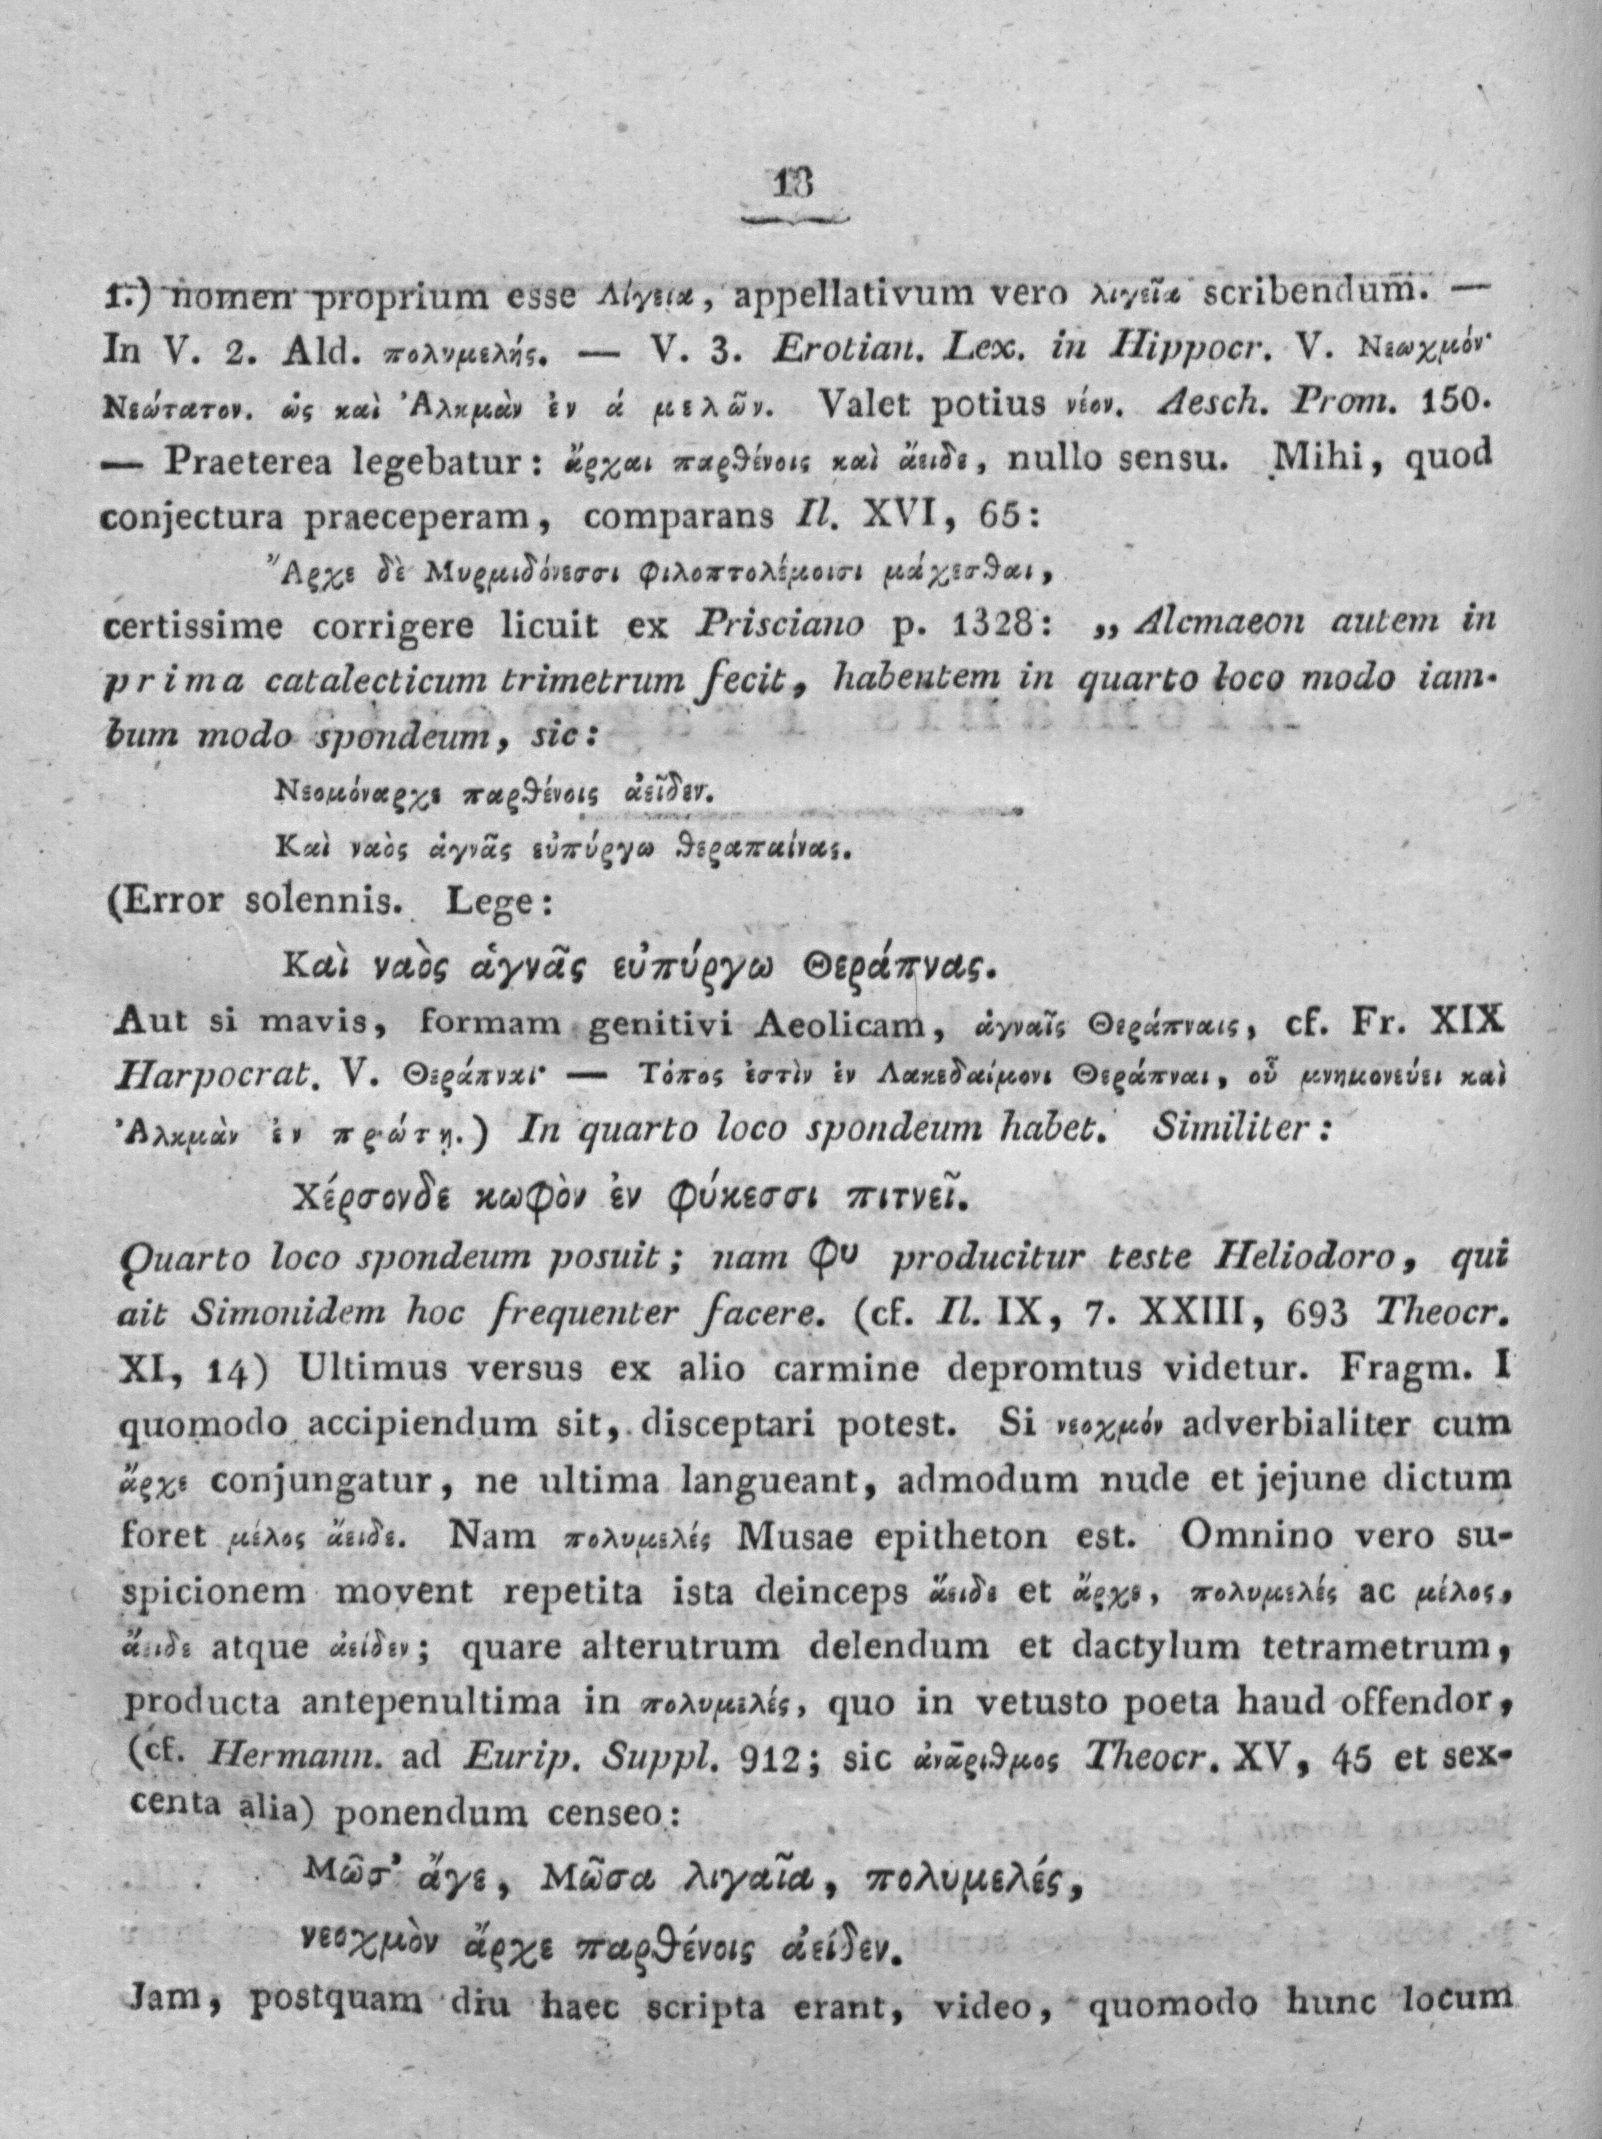 18
1.) nomen proprium esse Λίγεια, appellativum vero λιγεῖα scribendum. —
In V. 2. Ald. πολυμελής. — V. 3. Erotian. Lex. in Hippocr. V. Νεωχμόν·
Νεώτατον. ὡς καὶ Ἀλκμὰν ἐν ά μελῶν. Valet potius νέον. Aesch. Prom. 150.
— Praeterea legebatur: ἄρχαι παρθένοις καὶ ἄειδε, nullo sensu. Mihi, quod
conjectura praeceperam, comparans Il. XVI, 65:
Ἄρχε δὲ Μυρμιδόνεσσι φιλοπτολέμοισι μάχεσθαι,
certissime corrigere licuit ex Prisciano p. 1328: „Alcmaeon autem in
prima catalecticum trimetrum fecit, habentem in quarto loco modo iam-
bum modo spondeum, sic:
Νεομόναρχε παρθένοις ἀεῖδεν.
Καὶ ναὸς ἁγνᾶς εὐπύργω θεραπαίνας.
(Error solennis. Lege:
Καὶ ναὸς ἁγνᾶς εὐπύργω Θεράπνας.
Aut si mavis, formam genitivi Aeolicam, ἁγναῖς Θεράπναις, cf. Fr. XIX
Harpocrat. V. Θεράπναι· — Τόπος ἐστὶν ἐν Λακεδαίμονι Θεράπναι, οὗ μνημονεύει καὶ
Ἀλκμὰν ἐν πρώτῃ.) In quarto loco spondeum habet. Similiter:
Χέρσονδε κωφὸν ἐν φύκεσσι πιτνεῖ.
Quarto loco spondeum posuit; nam φυ producitur teste Heliodoro, qui
ait Simonidem hoc frequenter facere. (cf. Il. IX, 7. XXIII, 693 Theocr.
XI, 14) Ultimus versus ex alio carmine depromtus videtur. Fragm. I
quomodo accipiendum sit, disceptari potest. Si νεοχμόν adverbialiter cum
ἄρχε conjungatur, ne ultima langueant, admodum nude et jejune dictum
foret μέλος ἄειδε. Nam πολυμελές Musae epitheton est. Omnino vero su-
spicionem movent repetita ista deinceps ἄειδε et ἄρχε, πολυμελές ac μέλος,
ἄειδε atque ἀείδεν; quare alterutrum delendum et dactylum tetrametrum,
producta antepenultima in πολυμελές, quo in vetusto poeta haud offendor,
(cf. Hermann. ad Eurip. Suppl. 912; sic ἀνᾱριθμος Theocr. XV, 45 et sex-
centa alia) ponendum censeo:
Μῶσ' ἄγε, Μῶσα λιγαῖα, πολυμελές,
νεοχμὸν ἄρχε παρθένοις ἀείδεν.
Jam, postquam diu haec scripta erant, video, quomodo hunc locum